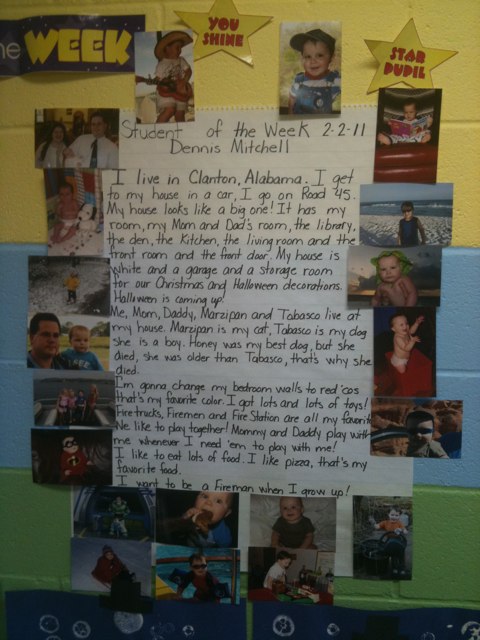 he WEEK
YOU SHINE
STAR PUPIL
Student of the Week 2-2-11
Dennis Mitchell
I live in Clanton, Alabama. I get
to my house in a car, I go on Road 45.
My house looks like a big one! It has my
room, my Mom and Dad's room, the library,
the den, the Kitchen, the living room and the
front room and the front door. My house is
white and a garage and a storage room
for our Christmas and Halloween decorations.
Halloween is coming up!
Me, Mom, Daddy, Marzipan and Tobasco live at
my house. Marzipan is my cat, Tabasco is my dog
she is a boy. Honey was my best dog, but she
died, she was older than Tabasco, that's why she
died.
I'm gonna change my bedroom walls to red 'cos
that's my favorite color. I got lots and lots of toys!
Firetrucks, Firemen and Fire Station are all my favorit
We like to play together! Mommy and Daddy play with
me whenever I need 'em to play with me!
I like to eat lots of food. I like pizza, that's my
favorite food.
I want to be a Fireman when I grow up!